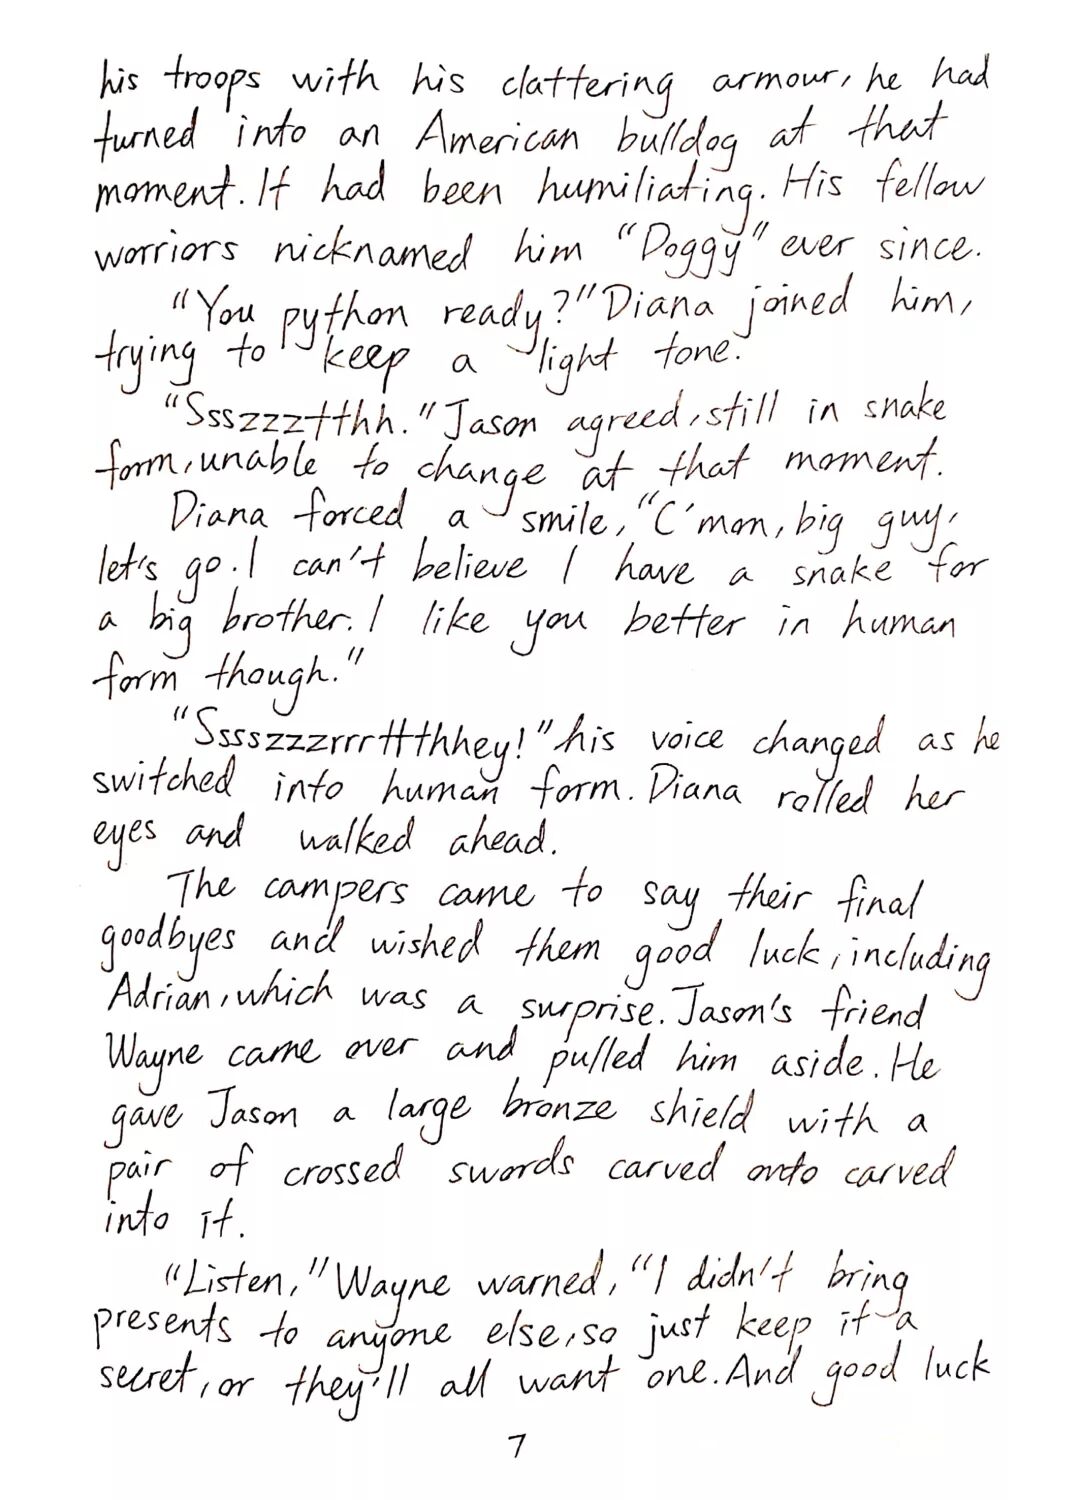 his troops with his clattering armour, he had
turned into an American bulldog at that
moment. It had been humiliating. His fellow
worriors nicknamed him "Doggy" ever since.
"You python ready?" Diana joined him,
trying to keep a light tone.
"Ssszzztthh." Jason agreed, still in snake
form, unable to change at that moment.
Diana forced a smile, "C'mon, big guy,
let's go. I can't believe I have a snake for
a big brother. I like you better in human
form though."
"Sssszzzrrrttthhey!" his voice changed as he
switched into human form. Diana rolled her
eyes and walked ahead.
The campers came to say their final
goodbyes and wished them good luck, including
Adrian, which was a surprise. Jason's friend
Wayne came over and pulled him aside. He
gave Jason a large bronze shield with a
pair of crossed swords carved onto carved
into it.
"Listen," Wayne warned, "I didn't bring
presents to anyone else, so just keep it a
secret, or they'll all want one. And good luck
7